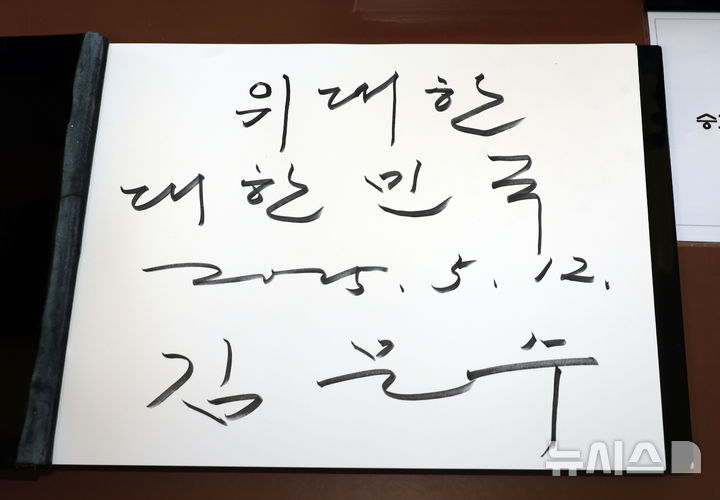 위대한
대한민국
2025. 5. 12.
김문수
승
뉴시스